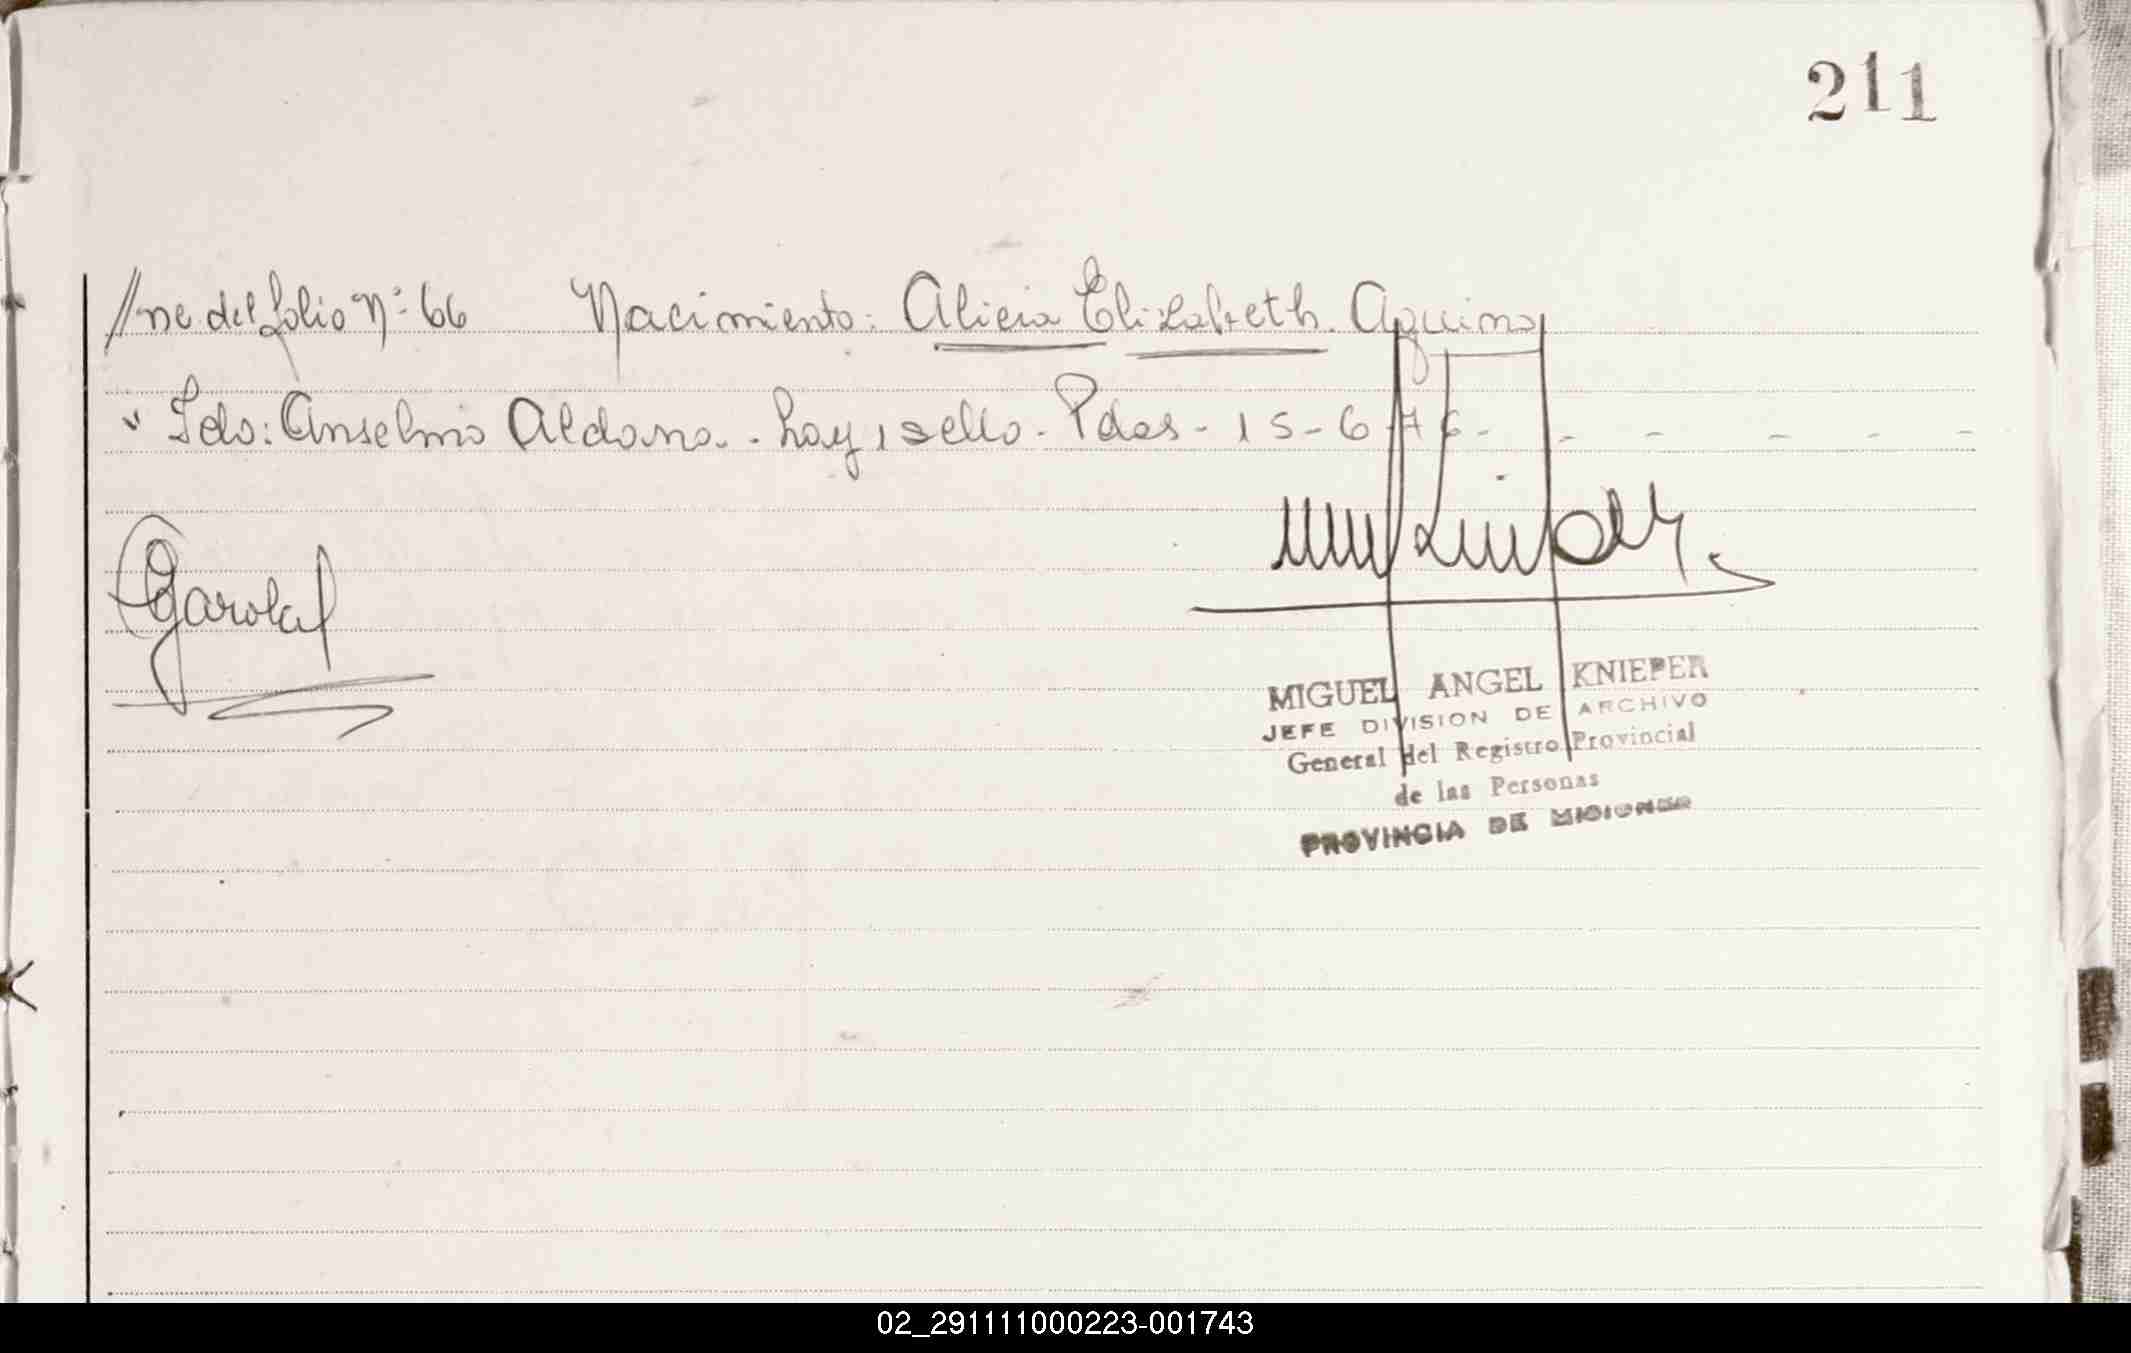 211
//ne del folio Nº 66 Nacimiento: Alicia Elizabeth Aquino
" Fdo: Anselmo Aldana - hay 1 sello - Pdas - 15-6-76 - - - - - -
MIGUEL ANGEL KNIEPER
JEFE DIVISION DE ARCHIVO
General del Registro Provincial
de las Personas
PROVINCIA DE MISIONES
02_291111000223-001743